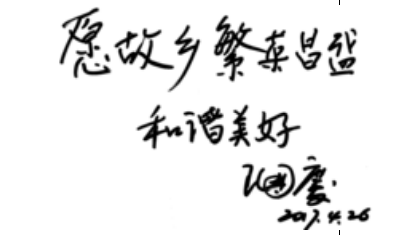 愿故乡繁荣昌盛
和谐美好
国慶
2017.4.26